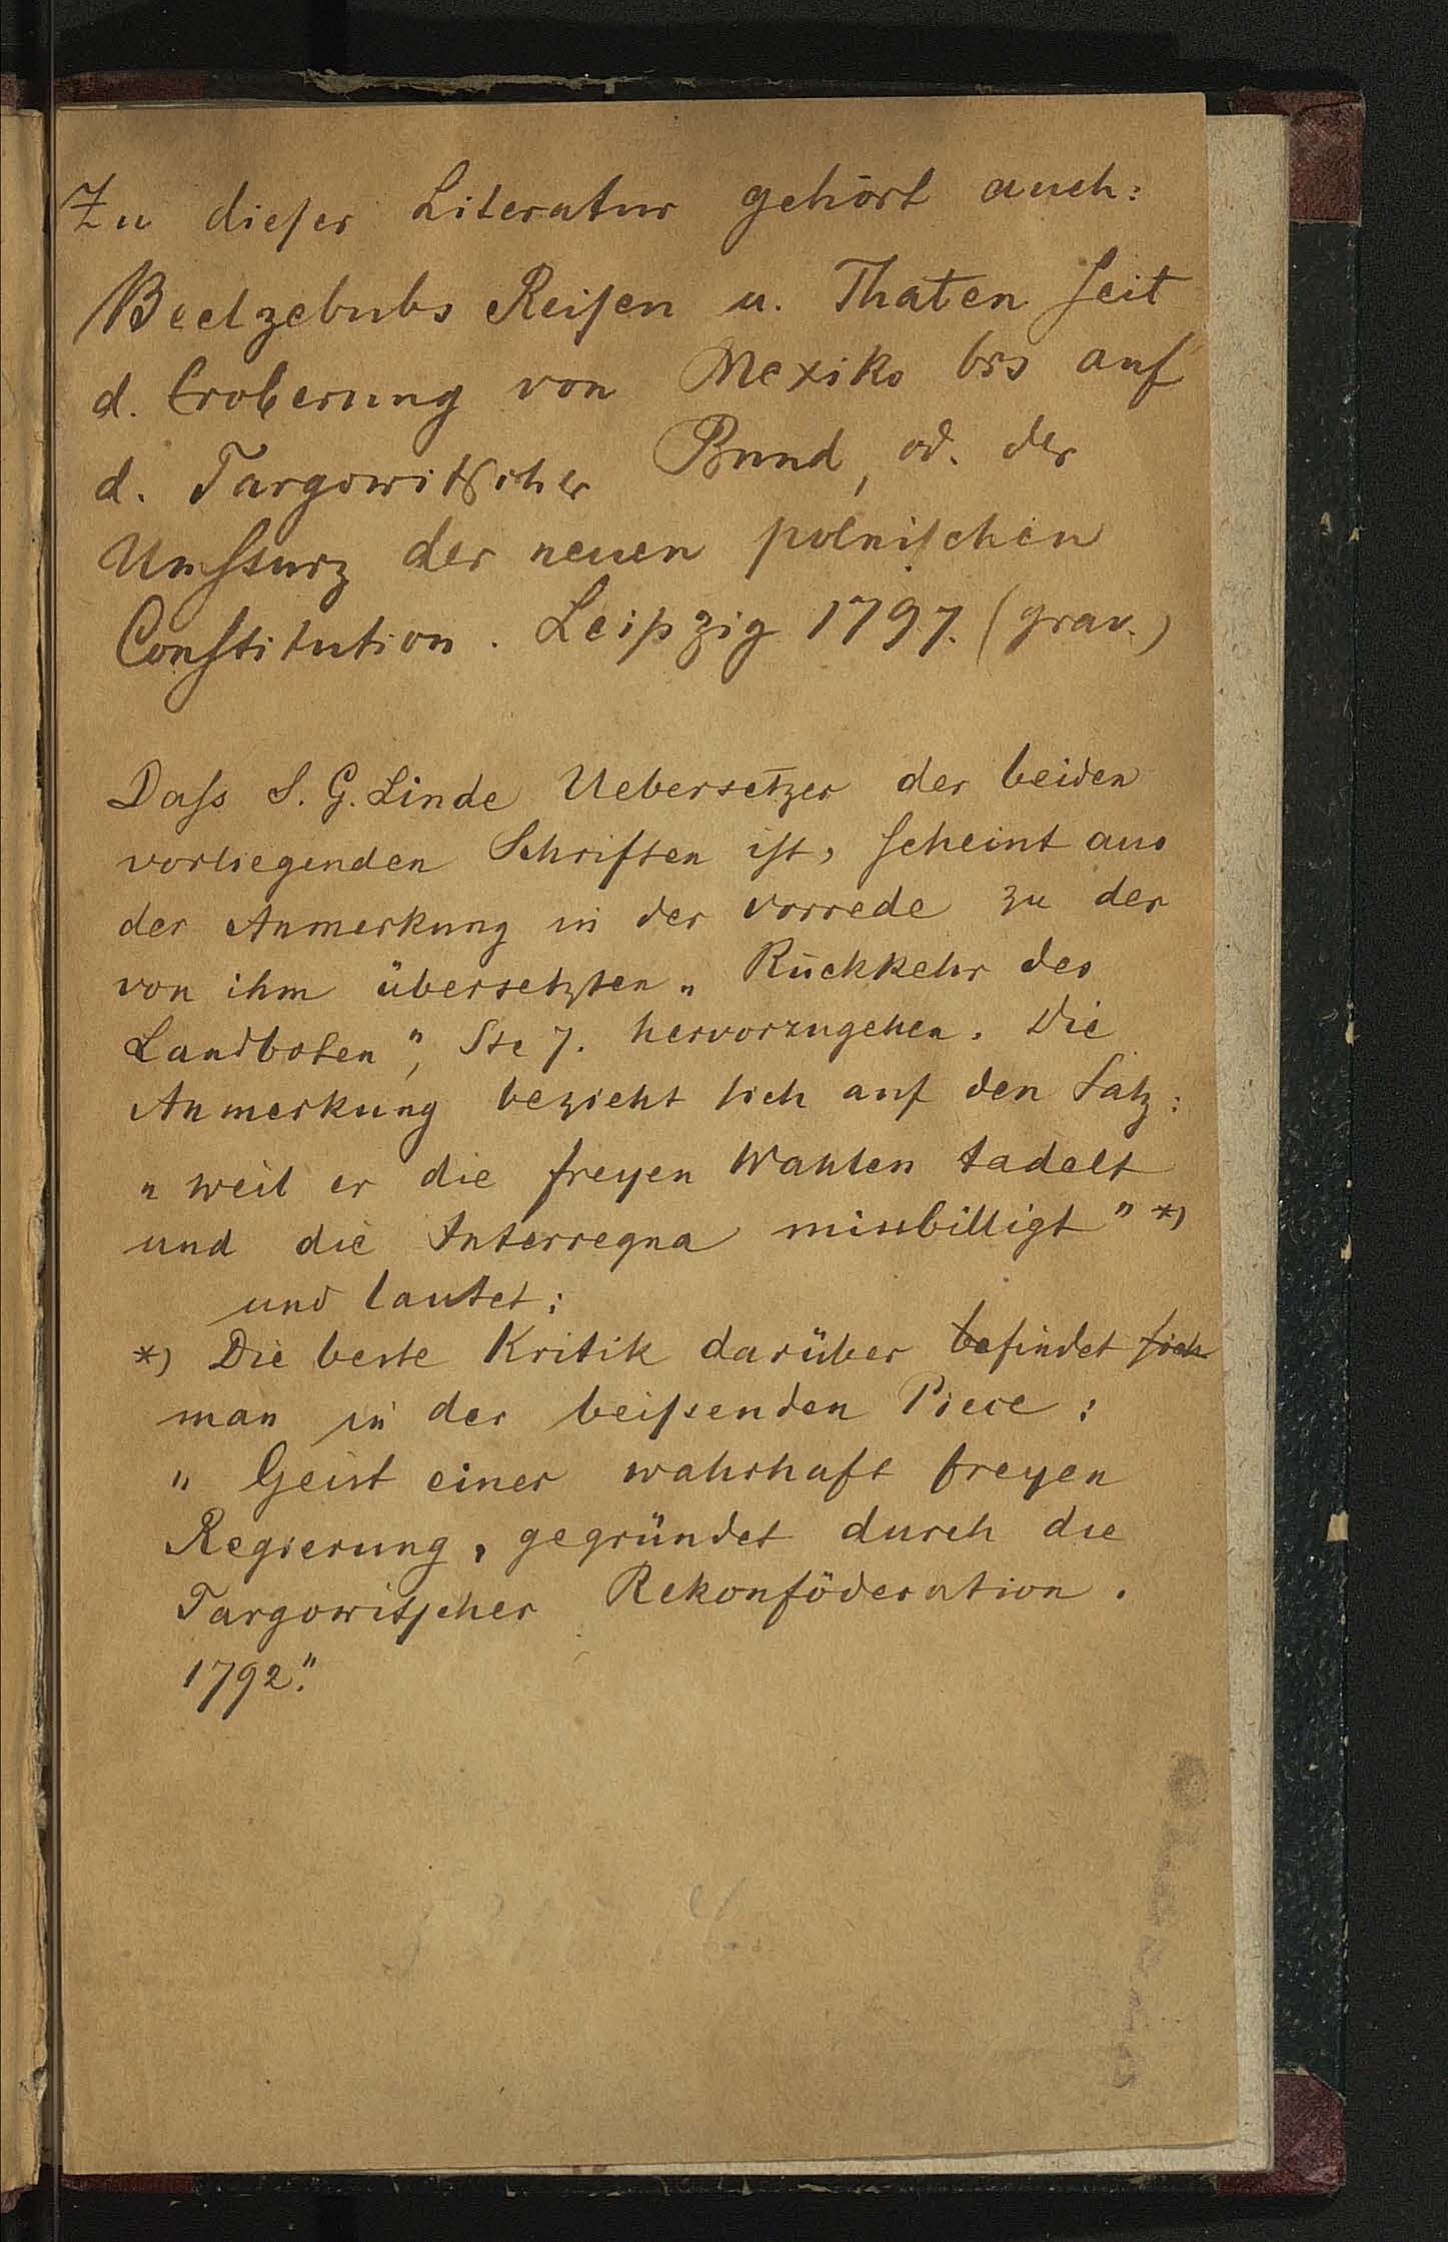 Zu dieſer Literatur gehört auch:
Beelzebubs Reiſen u. Thaten ſeit
d. Eroberung von Mexiko bis auf
d. Targowitſcher Bund, od. der
Umſturz der neuen polniſchen
Conſtitution. Leipzig 1797. (grav.)
Daſs S. G. Linde Uebersetzer der beiden
vorliegenden Schriften iſt, ſcheint aus
der Anmerkung in der Vorrede zu der
von ihm übersetzten „Rückkehr des
Landboten”, Ste 7. hervorzugehen. Die
Anmerkung bezieht sich auf den Satz:
„weil er die freyen Wahlen tadelt
und die Interregna missbilligt” *)
und lautet:
*) Die beste Kritik darüber befindet sich
man in der beiſsenden Piece:
„Geist einer wahrhaft freyen
Regierung, gegründet durch die
Targowitſcher Rekonföderation.
1792.”